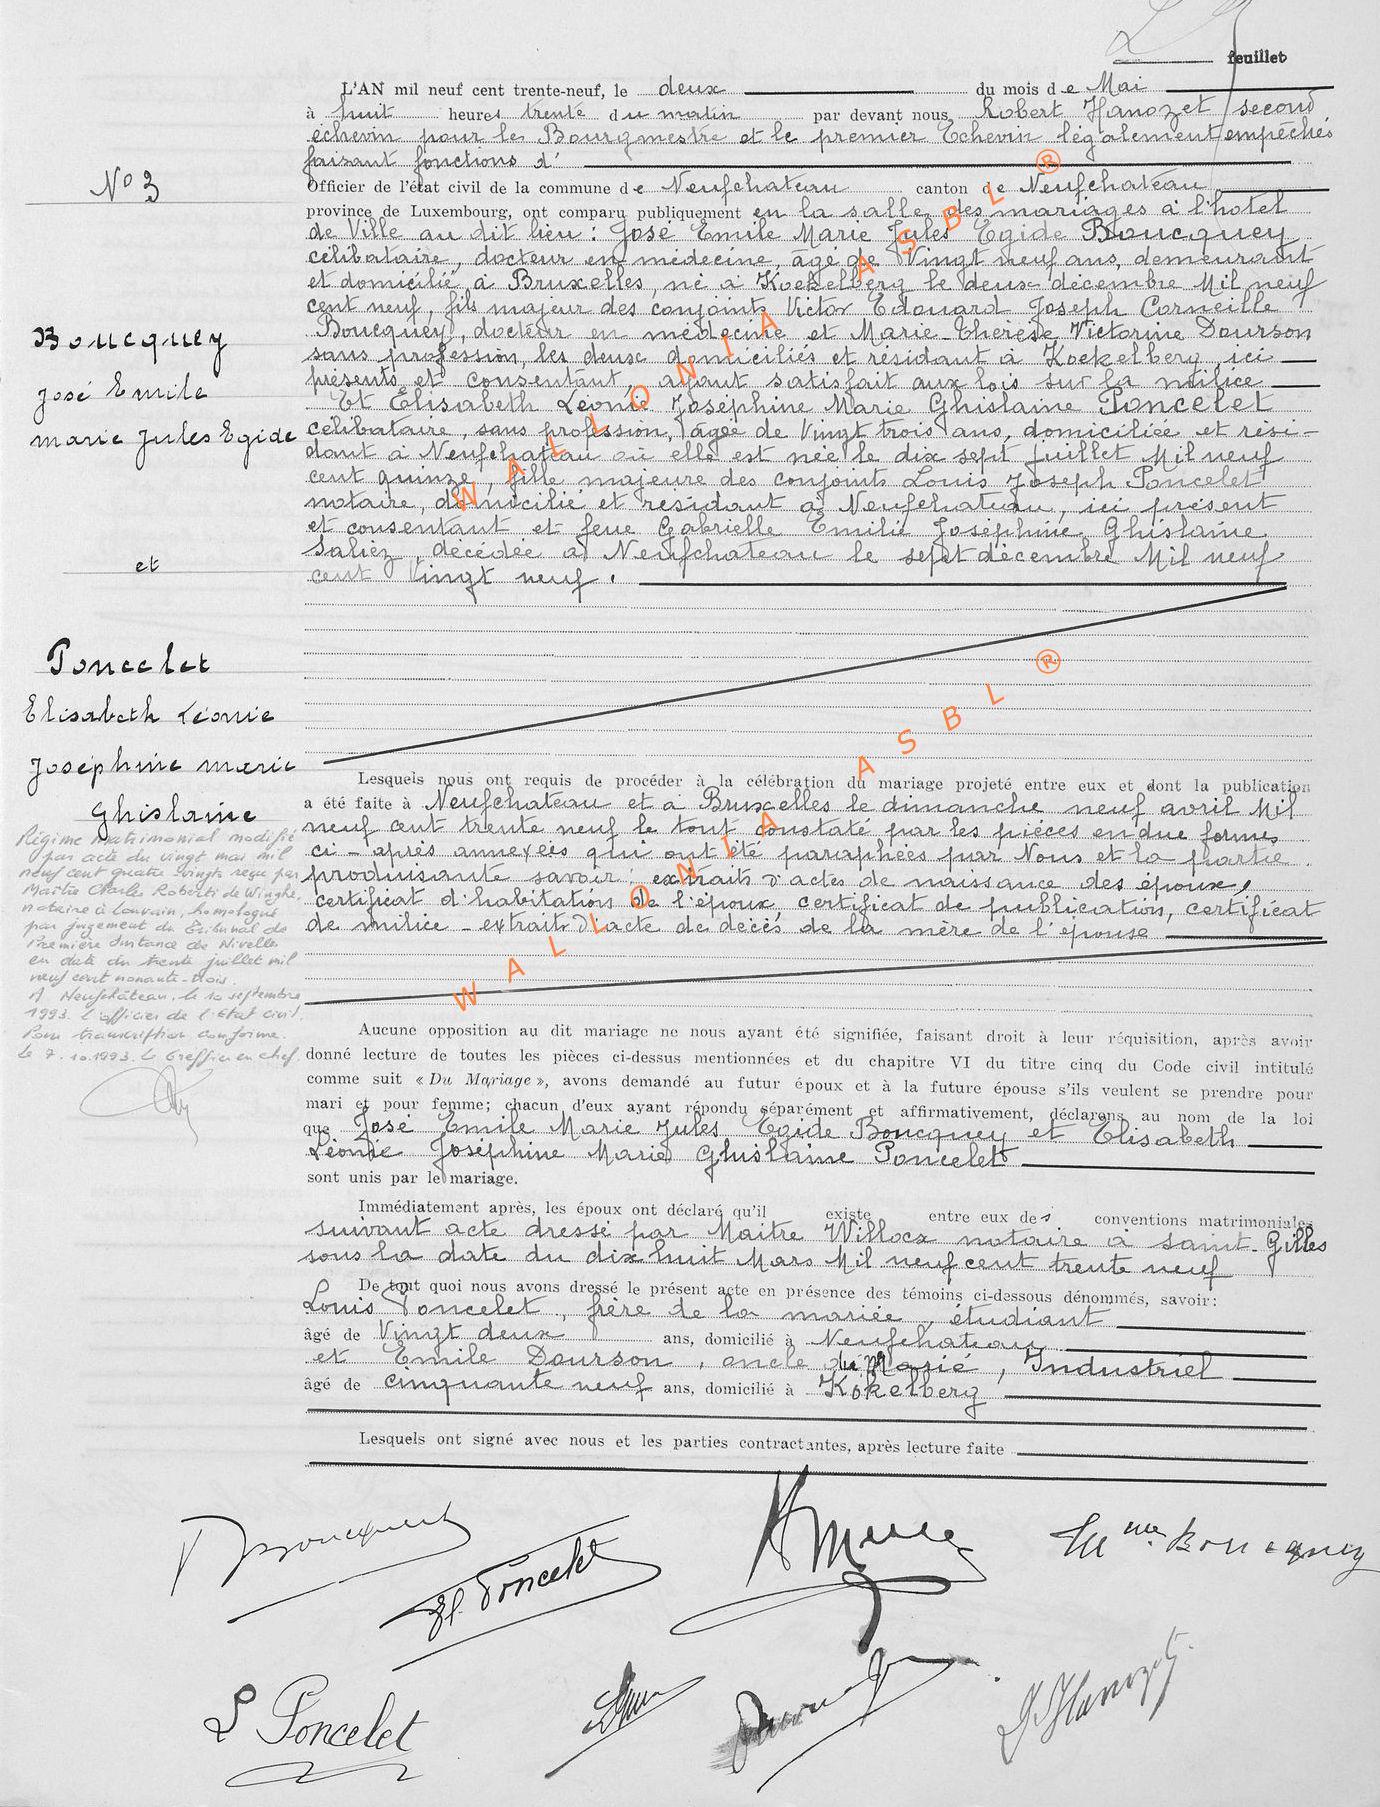 feuillet
L'AN mil neuf cent trente-neuf, le deux du mois de Mai
à huit heures trente du matin par devant nous Robert Hanozet second
échevin pour le Bourgmestre et le premier Echevin légalement empêchés
faisant fonctions d'
Officier de l'état civil de la commune de Neufchateau canton de Neufchateau
province de Luxembourg, ont comparu publiquement en la salle des mariages à l'hôtel
de Ville au dit lieu : José Emile Marie Jules Egide Boucquey
célibataire, docteur en médecine, âgé de Vingt neuf ans, demeurant
et domicilié à Bruxelles, né à Koekelberg le deux décembre Mil neuf
cent neuf, fils majeur des conjoints Victor Edouard Joseph Corneille
Boucquey, docteur en médecine et Marie-Thérèse Victorine Dourson
sans profession, les deux domiciliés et résidant à Koekelberg, ici
présents et consentant, ayant satisfait aux lois sur la milice
Et Elisabeth Léonie Joséphine Marie Ghislaine Poncelet
célibataire, sans profession, âgée de Vingt trois ans, domiciliée et rési-
dant à Neufchateau où elle est née le dix sept juillet Mil neuf
cent quinze, fille majeure des conjoints Louis Joseph Poncelet
notaire, domicilié et résidant à Neufchateau, ici présent
et consentant et feue Gabrielle Emilie Joséphine Ghislaine
Saliez, décédée à Neufchateau le sept décembre Mil neuf
cent Vingt neuf.
N° 3
Boucquey
José Emile
Marie Jules Egide
et
Poncelet
Elisabeth Léonie
Joséphine Marie
Ghislaine
Régime matrimonial modifié
par acte du vingt mai mil
neuf cent quatre vingts reçu par
Maître Charles Roberti de Winghe,
notaire à Louvain, homologué
par jugement du Tribunal de
Première Instance de Nivelles
en date du trente juillet mil
neuf cent nonante-trois.
A Neufchâteau, le 10 septembre
1993. L'officier de l'Etat civil.
Pour transcription conforme.
Le 7.10.1993. Le Greffier en chef.
Lesquels nous ont requis de procéder à la célébration du mariage projeté entre eux et dont la publication
a été faite à Neufchateau et à Bruxelles le dimanche neuf avril Mil
neuf cent trente neuf le tout constaté par les pièces en due forme
ci-après annexées qui ont été paraphées par Nous et la partie
produisante savoir : extraits d'actes de naissance des époux,
certificat d'habitation de l'époux, certificat de publication, certificat
de milice - extrait d'acte de décès de la mère de l'épouse
Aucune opposition au dit mariage ne nous ayant été signifiée, faisant droit à leur réquisition, après avoir
donné lecture de toutes les pièces ci-dessus mentionnées et du chapitre VI du titre cinq du Code civil intitulé
comme suit « Du Mariage », avons demandé au futur époux et à la future épouse s'ils veulent se prendre pour
mari et pour femme; chacun d'eux ayant répondu séparément et affirmativement, déclarons au nom de la loi
que José Emile Marie Jules Egide Boucquey et Elisabeth
Léonie Joséphine Marie Ghislaine Poncelet
sont unis par le mariage.
Immédiatement après, les époux ont déclaré qu'il existe entre eux des conventions matrimoniales
suivant acte dressé par Maître Willocx notaire à Saint-Gilles
sous la date du dix huit Mars Mil neuf cent trente neuf
De tout quoi nous avons dressé le présent acte en présence des témoins ci-dessous dénommés, savoir:
Louis Poncelet, frère de la mariée, étudiant
âgé de Vingt deux ans, domicilié à Neufchateau
et Emile Dourson, oncle du Marié, Industriel
âgé de cinquante neuf ans, domicilié à Kokelberg
Lesquels ont signé avec nous et les parties contractantes, après lecture faite
Boucquey
El. Poncelet
Mme Boucquey
L Poncelet
Hanozet
WALLONIA ASBL ®
WALLONIA ASBL ®